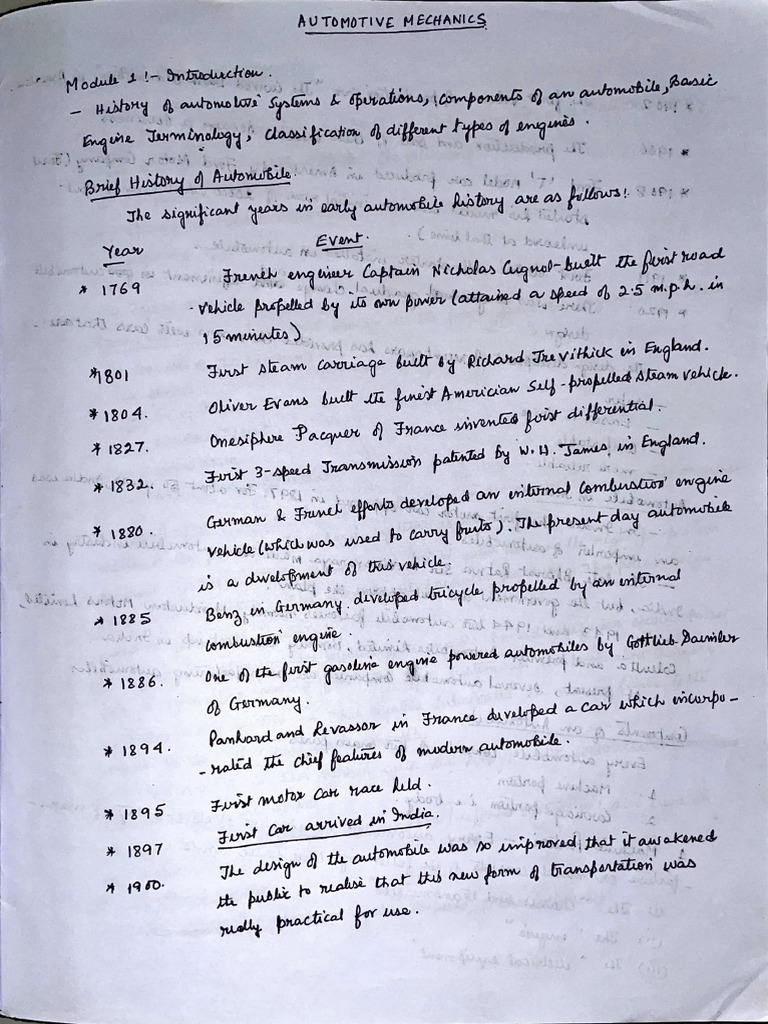 AUTOMOTIVE MECHANICS
Module 1 :- Introduction.
- History of automotive systems & operations, components of an automobile, Basic
Engine Terminology, classification of different types of engines.
Brief History of Automobile.
The significant years in early automobile history are as follows:
Year Event.
* 1769 French engineer Captain Nicholas Cugnol- built the first road
- vehicle propelled by its own power (attained a speed of 2.5 m.p.h. in
15 minutes)
*1801 First steam carriage built by Richard Trevithick in England.
* 1804. Oliver Evans built the finest Americian Self-propelled steam vehicle.
* 1827. Onesiphere Pacquer of France invented first differential.
* 1832. First 3-speed Transmission patented by W.H. James, in England.
* 1880. German & French efforts developed an internal combustion engine
vehicle (which was used to carry fruits). The present day automobile
is a development of this vehicle.
* 1885 Benz in Germany, developed tricycle propelled by an internal
combustion engine.
* 1886. One of the first gasoline engine powered automobiles by Gottlieb-Daimler
of Germany.
* 1894. Panhard and Levassor in France developed a car which incorpo-
- rated the chief features of modern automobile.
* 1895 First motor car race held.
* 1897 First Car arrived in India.
* 1900. The design of the automobile was so improved that it awakened
the public to realise that this new form of transportation was
really practical for use.